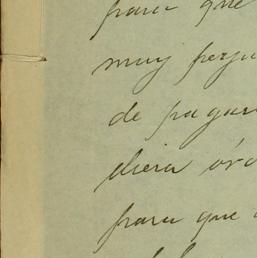 para que
muy perju
de pagar
diera órd
para que